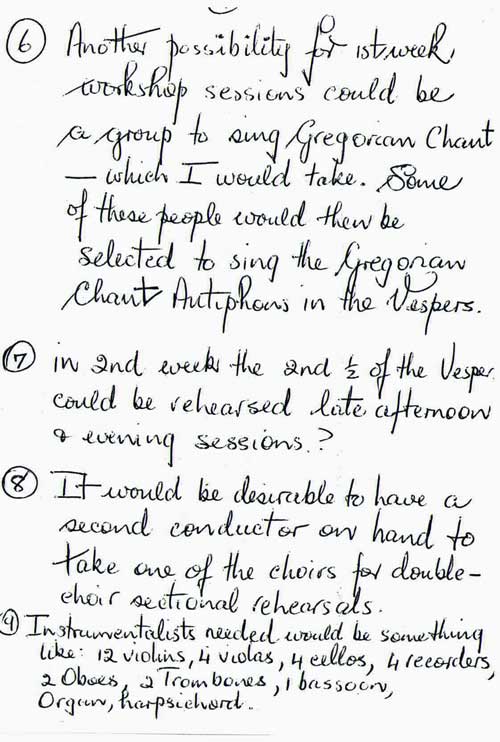 ⑥ Another possibility for 1st week,
workshop sessions could be
a group to sing Gregorian Chant
— which I would take. Some
of these people would then be
selected to sing the Gregorian
Chant Antiphons in the Vespers.
⑦ in 2nd week the 2nd ½ of the Vesper
could be rehearsed late afternoon
& evening sessions.?
⑧ It would be desirable to have a
second conductor on hand to
take one of the choirs for double-
choir sectional rehearsals.
⑨ Instrumentalists needed would be something
like: 12 violins, 4 violas, 4 cellos, 4 recorders,
2 Oboes, 2 Trombones, 1 bassoon,
Organ, harpsichord.